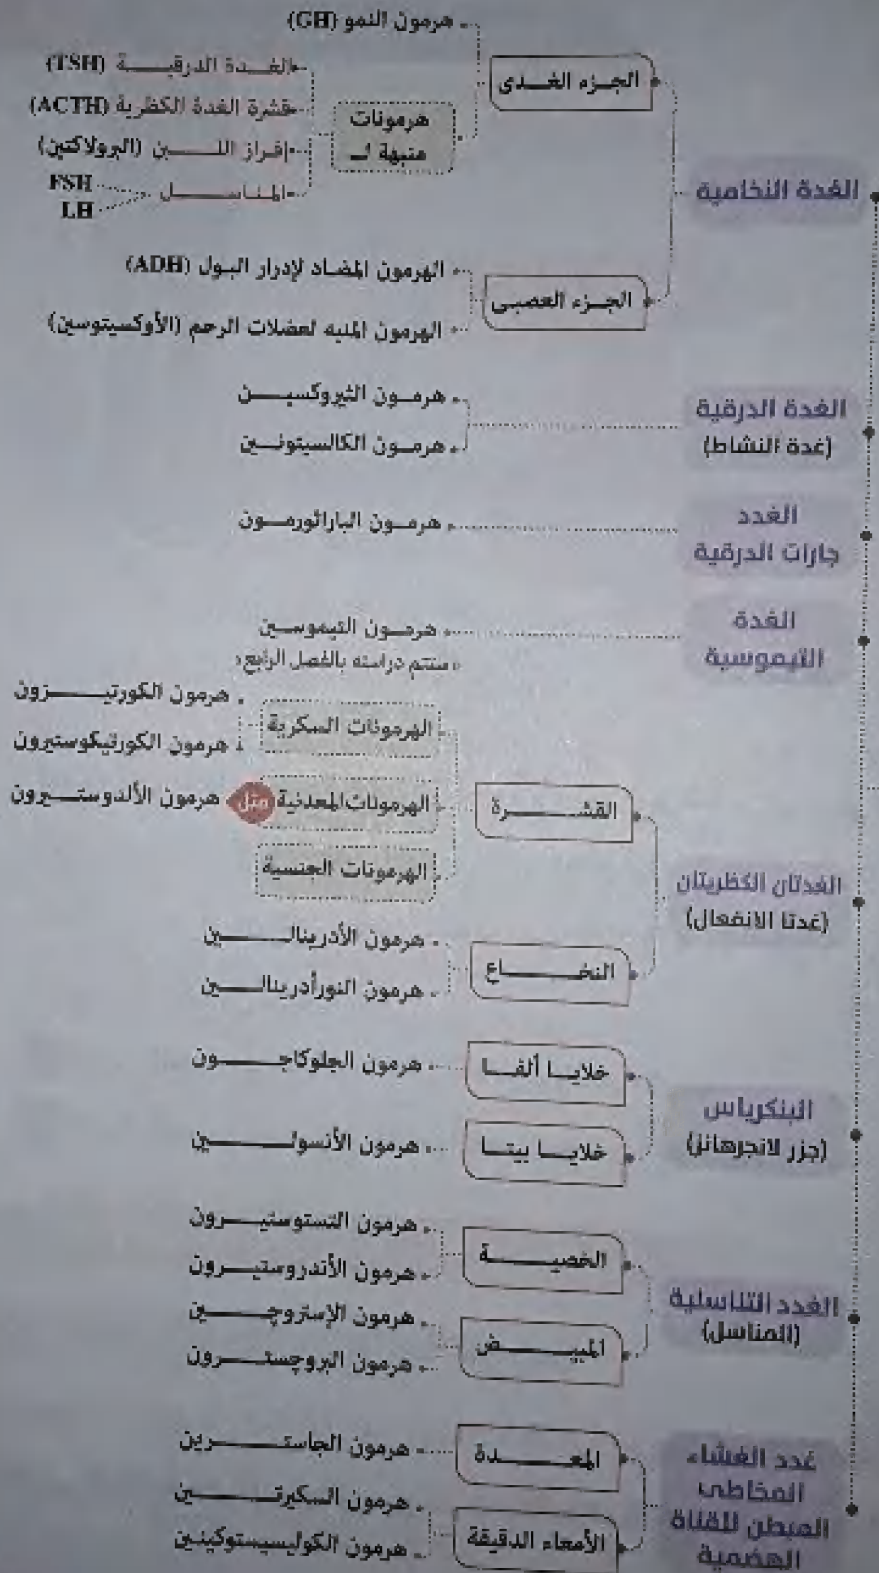 الغدة النخامية
الجزء الغدى
هرمون النمو (GH)
هرمونات
منبهة لـ
الغدة الدرقية (TSH)
قشرة الغدة الكظرية (ACTH)
إفراز اللبن (البرولاكتين)
المناسل
FSH
LH
الجزء العصبى
الهرمون المضاد لإدرار البول (ADH)
الهرمون المنبه لعضلات الرحم (الأوكسيتوسين)
الغدة الدرقية
(غدة النشاط)
هرمون الثيروكسين
هرمون الكالسيتونين
الغدد
جارات الدرقية
هرمون الباراثورمون
الغدة
التيموسية
هرمون التيموسين
«ستتم دراسته بالفصل الرابع»
الغدتان الكظريتان
(غدتا الانفعال)
القشرة
الهرمونات السكرية
هرمون الكورتيزون
هرمون الكورتيكوستيرون
الهرمونات المعدنية مثل هرمون الألدوستيرون
الهرمونات الجنسية
النخاع
هرمون الأدرينالين
هرمون النورأدرينالين
البنكرياس
(جزر لانجرهانز)
خلايا ألفا
هرمون الجلوكاجون
خلايا بيتا
هرمون الأنسولين
الغدد التناسلية
(المناسل)
الخصية
هرمون التستوستيرون
هرمون الأندروستيرون
المبيض
هرمون الإستروچين
هرمون البروچسترون
غدد الغشاء
المخاطى
المبطن للقناة
الهضمية
المعدة
هرمون الجاسترين
الأمعاء الدقيقة
هرمون السكيرتين
هرمون الكوليسيستوكينين